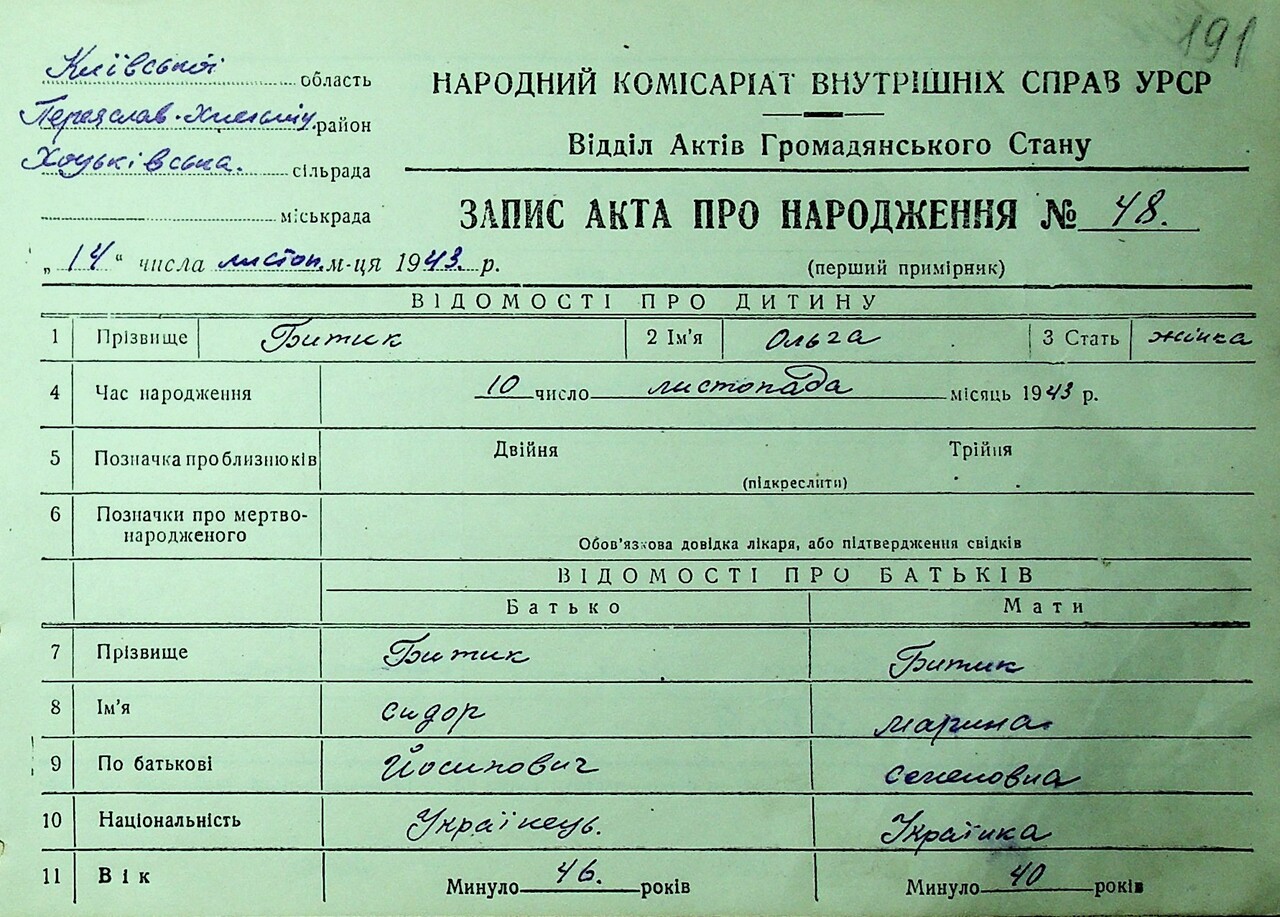 191
Київської область
Переяслав-Хмельниц. район
Хоцьківська. сільрада
міськрада
НАРОДНИЙ КОМІСАРІАТ ВНУТРІШНІХ СПРАВ УРСР
Відділ Актів Громадянського Стану
ЗАПИС АКТА ПРО НАРОДЖЕННЯ № 48.
„14“ числа листоп. м-ця 1943. р.
(перший примірник)
ВІДОМОСТІ ПРО ДИТИНУ
1 Прізвище Битик 2 Ім'я Ольга 3 Стать жінка
4 Час народження 10 число листопада місяць 1943 р.
5 Позначка про близнюків Двійня Трійня
(підкреслити)
6 Позначки про мертво-
народженого
Обов'язкова довідка лікаря, або підтвердження свідків
ВІДОМОСТІ ПРО БАТЬКІВ
Батько Мати
7 Прізвище Битик Битик
8 Ім'я Сидор Марина
9 По батькові Йосипович Семеновна
10 Національність Українець. Українка
11 Вік Минуло 46. років Минуло 40 років